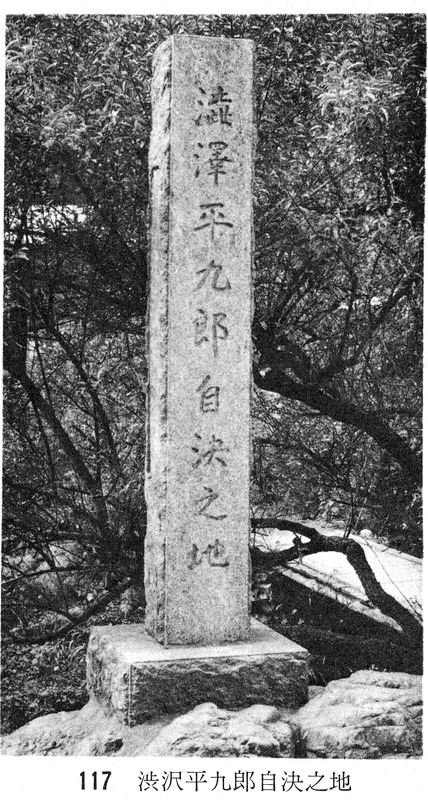 澁澤平九郎自決之地
117 渋沢平九郎自決之地